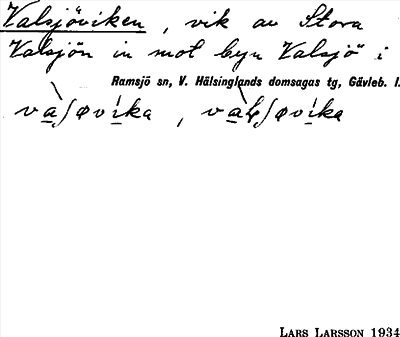 Valsjöviken, vik av Stora
Valsjön in mot byn Valsjö i
Ramsjö sn, V. Hälsinglands domsagas tg, Gävleb. l.
và̱ʃøvi̱ka, và̱ɫʃøvi̱ka
LARS LARSSON 1934